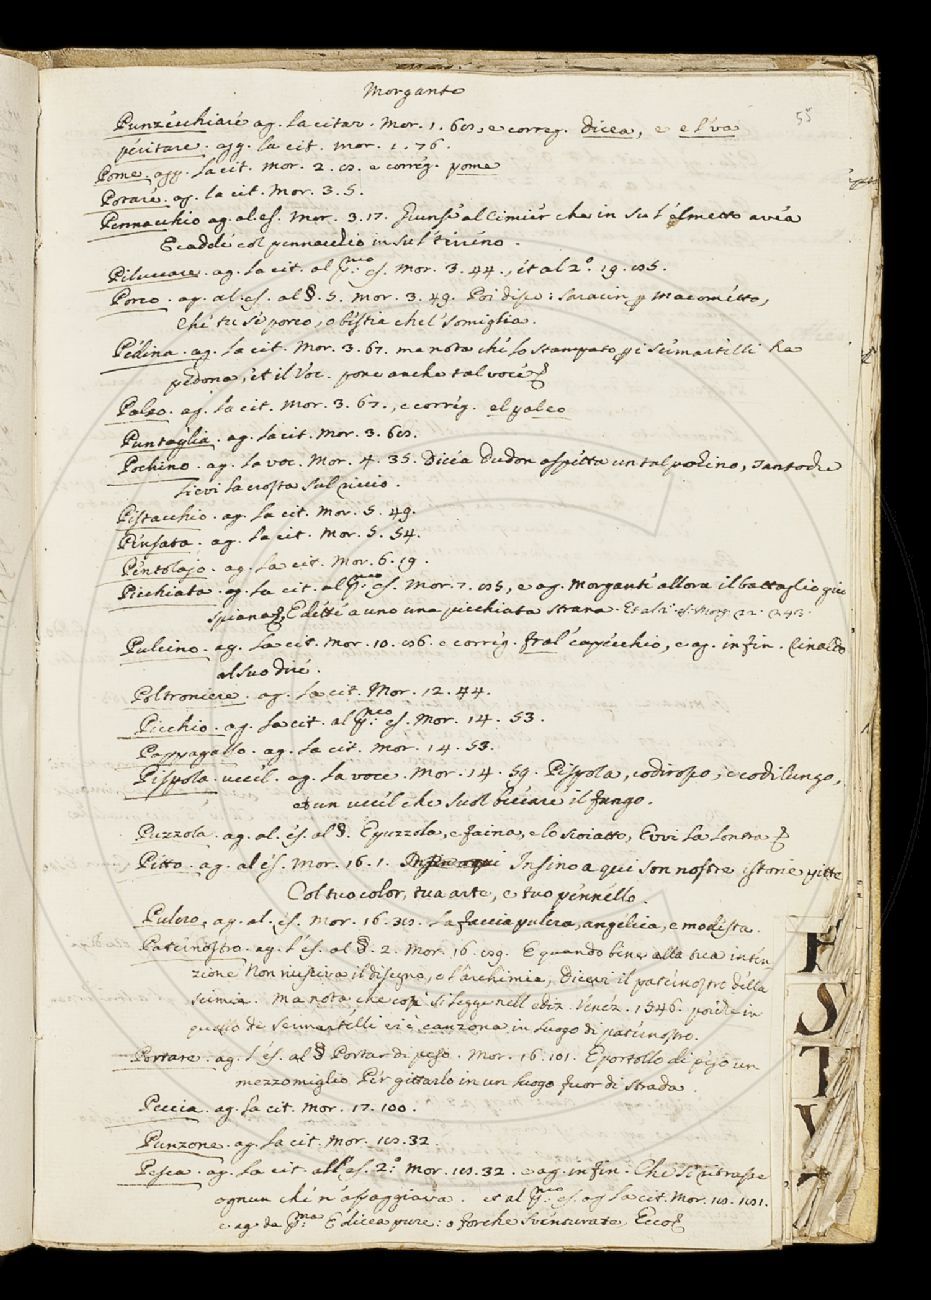 Morgante
55
Punzecchiare ag. la citaz. Mor. 1. 68, e correg. dicea, e e l'va
peritare. agg. la cit. mor. 1. 76.
Pome. agg. la cit. mor. 2. 8. e corrég. pome
Potare. ag. la cit. Mor. 3. 5.
Pennacchio ag. al es. Mor. 3. 17. Giunse al cimier che in su l'elmetto avéa
E cadde col pennacchio in sul tireno.
Piluccare. ag. la cit. al pmo. es. Mor. 3. 44., et al 2.° 19. 85.
Porco. ag. al. es. al §. 5. Mor. 3. 49. Poi disse: saracin, p Macometto,
Che tu se' porco, o bestia che l' somiglia.
Pedina. ag. la cit. Mor. 3. 67. ma nota che lo stampato ppi Sermartelli ha
pedona, et il Voc. pone anche tal voce
Paleo. ag. la cit. Mor. 3. 67., e corrég. el paleo
Puntaglia. ag. la cit. Mor. 3. 68.
Pochino. ag. la voc. Mor. 4. 35. Dicea Dudon aspetta un tal pochino, Tanto che
lievi la crosta sul riccio.
Pistacchio. ag. la cit. Mor. 5. 49.
Piusata. ag. la cit. Mor. 5. 54.
Pentolajo. ag. la cit. Mor. 6. 19.
Picchiata. ag. la cit. al pmo. es. Mor. 7. 85, e ag. Morgante allora il battaglio giu
spiana, E dette a uno una picchiata strana. Et al 2.° es. Morg. 22. 243.
Pulcino. ag. la cit. Mor. 10. 86. e corrég. fra 'l capecchio, e ag. in fin. Rinaldo
al suo dire.
Poltroniere. ag. la cit. Mor. 12. 44.
Picchio. ag. la cit. al pmo. es. Mor. 14. 53.
Pappagallo. ag. la cit. Mor. 14. 53.
Pispola. uccel. ag. la voce. Mor. 14. 59. Pispola, codirosso, e codilungo,
et un uccel che suol beccare il fungo.
Puzzola. ag. al. es. al §. E puzzola, e faina, e lo scoiatto, Evvi la lontra
Pitto. ag. al es. Mor. 16. 1. Insino a qui Insino a qui son nostre istorie pitte
Col tuo color, tua arte, e tuo pennello.
Pulcro, ag. al. es. Mor. 16. 38. La faccia pulcra, angelica, e modesta.
Paternostro. ag. l'es. al §. 2. Mor. 16. 89. E quando bene alla tua inten-
zione Non riusciva il disegno, e l'archimia, Dicevi il paternostro della
scimia. Ma nota che così si legge nell ediz. Venéz. 1546. poiche in
quello de Sermartelli vi è canzona in luogo di paternostro.
Portare. ag. l'es. al § Portar di peso. Mor. 16. 101. E portollo di peso un
mezzo miglio Per gittarlo in un luogo fuor di strada.
Peccia. ag. la cit. Mor. 17. 100.
Punzone. ag. la cit. Mor. 18. 32.
Pesca. ag. la cit. all'es. 2.° Mor. 18. 32. e ag. in fin. Che si ritrasse
ognun che n'assaggiava. et al pmo. es. ag. la cit. Mor. 18. 181.
e ag. da pma. E dicea pure: o forche sventurate, Ecco